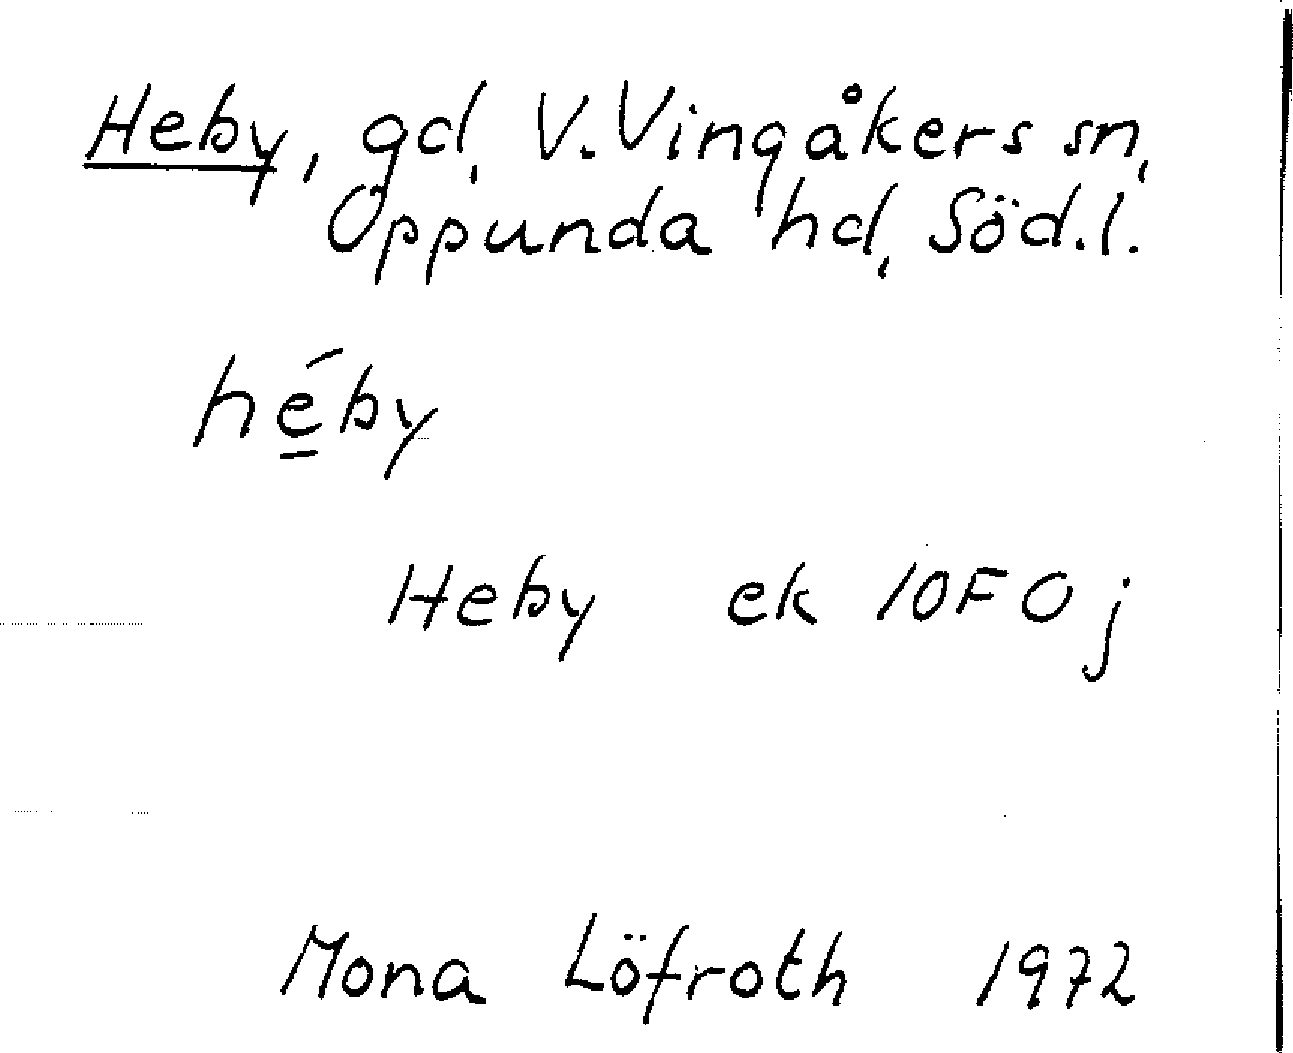 Heby, gd, V. Vingåkers sn,
Oppunda hd, Söd.l.
hé̱by
Heby ek 10F0j
Mona Löfroth 1972